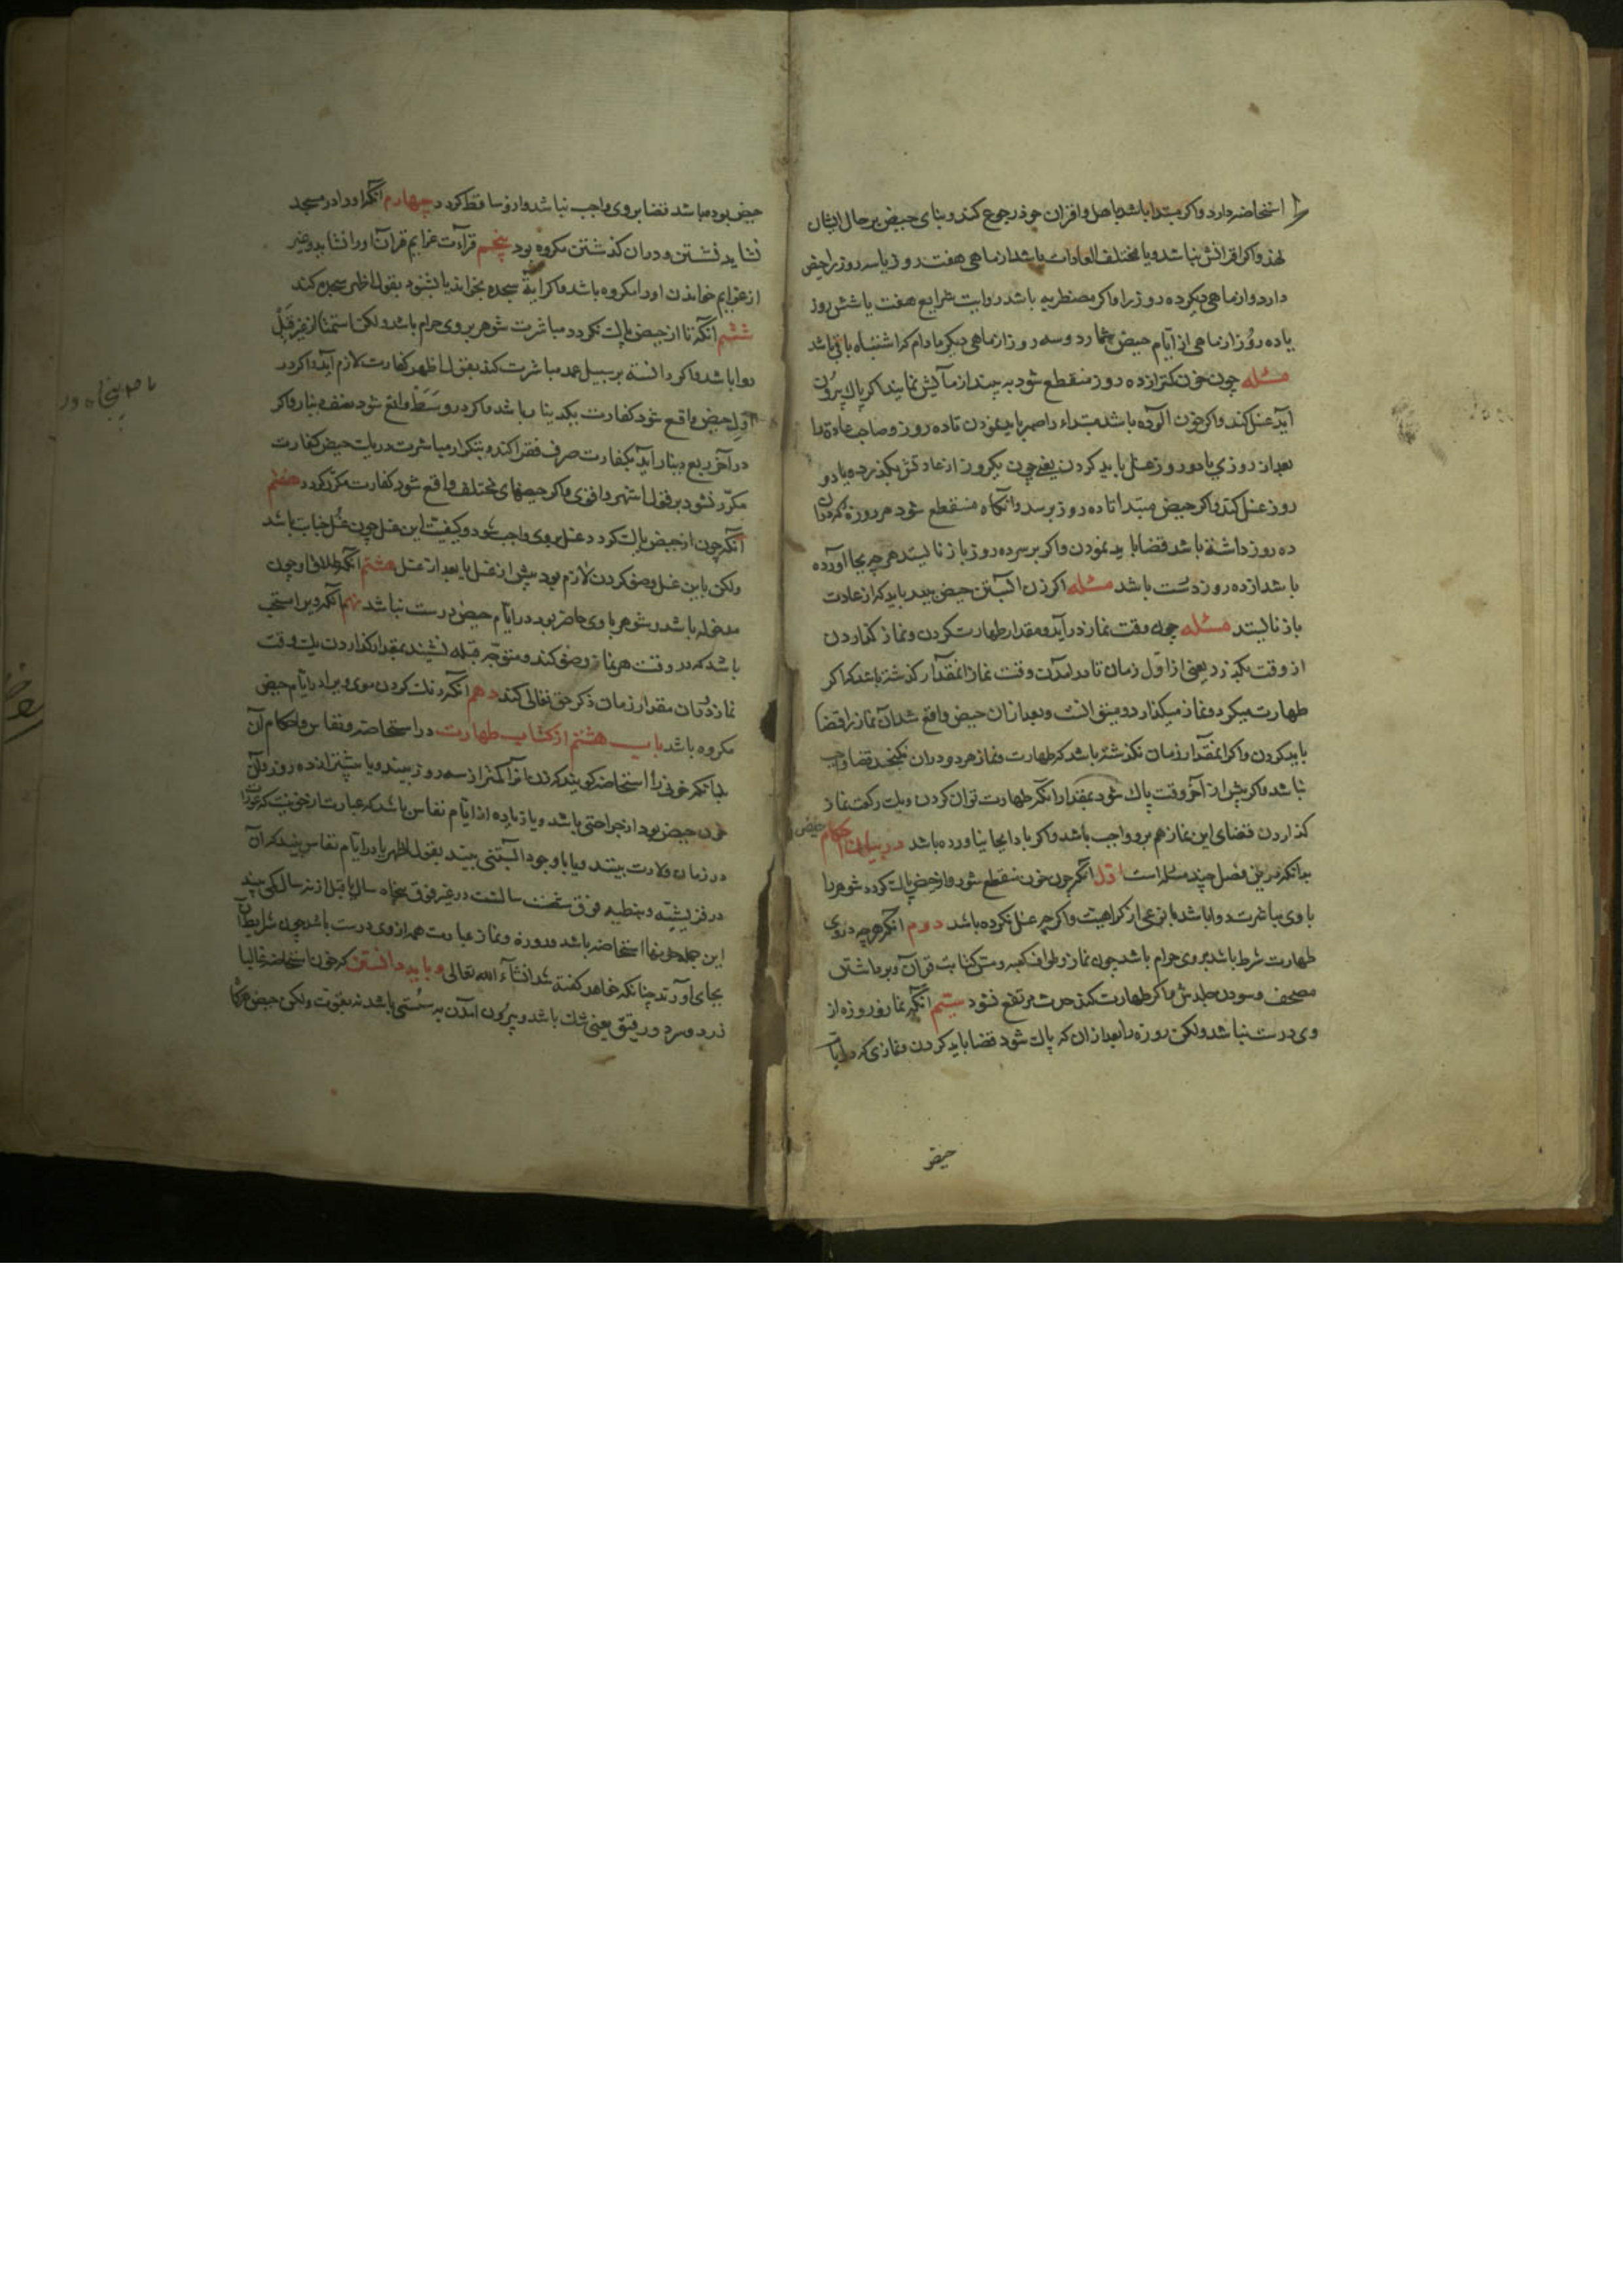 استحاضه دارد و اکر مبتدا باشد باصل و اقران خود رجوع کند و بنای حیض بر حال ایشان
نهذ و اکر اقرانش نباشد و یا مختلف العادات باشد از ماهی هفت روز یا سه روز را حیض
دارد و از ماهی دیکر ده روز را و اکر مضطربه باشد روایت شرایع هفت یا شش روز
یا ده روز از ماهی از ایام حیض شمارد و سه روز از ماهی دیکر مادام که اشتباه باقی باشد
مسئله چون خون کمتر از ده روز منقطع شود به پنبه ازمایش نمایند اکر پاک بیرون
آید غسل کند و اکر خون آلوده باشد مبتداء را صبر باید نمودن تا ده روز و صاحب عادة را
بعد از روزی یا دو روز غسل باید کردن یعنی چون یکروز از عادتش بکذرد یا دو
روز غسل کند و اکر حیض مبتدا تا ده روز برسد و انکاه منقطع شود هر روزه که در ان
ده روز داشته باشد قضا باید نمودن و اکر بر سر ده روز باز نایستد هر چه بجا آورده
باشد از ده روز درست باشد مسئله اکر زن آبستن حیض بیند باید که از عادت
باز نایستد مسئله چون وقت نماز در آید و مقدار طهارت کردن و نماز کذاردن
از وقت بکذرد یعنی از اول زمان تا در امدن وقت نماز انمقدار کذشته باشد که اکر
طهارت میکرد و نماز میکذارد و میتوانست و بعد از ان حیض واقع شد آن نماز را قضا
باید کردن و اکر انمقدار زمان نکذشته باشد که طهارت و نماز هر دو در ان نکنجد قضا واجب
نباشد و اکر پیش از آخر وقت پاک شود بمقدار انکه طهارت توان کردن و یک رکعت نماز
کذاردن قضای این نماز هم برو واجب باشد و اکر با دا بجا نیاورده باشد در بیان احکام حیض
بدانکه درین فصل چند مسئله است اول انکه چون خون منقطع شود و از حیض پاک کردد شوهر را
با وی مباشرت روا باشد با نوعی از کراهیت و اکر چه غسل نکرده باشد دوم انکه هر چه در وی
طهارت شرط باشد بر وی حرام باشد چون نماز و طواف کعبه و مس کتابت قران و برداشتن
مصحف و سودن جلدش و اکر طهارت کند حدث مرتفع نشود سیم انکه نماز و روزه از
وی درست نباشد ولکن روزه را بعد از ان که پاک شود قضا باید کردن و نمازی که در ایام
حیض
حیض بوده باشد قضا بر وی واجب نباشد و از و ساقط کردد چهارم انکه او را در مسجد
نشاید نشستن و در ان کذشتن مکروه بود پنجم قراءت عزایم قرآن او را نشاید و غیر
از عزایم خواندن او را مکروه باشد و اکر ایة سجده بخواند یا بشنود بقول اظهر سجده کند
ششم انکه تا از حیض پاک نکردد مباشرت شوهر بر وی حرام باشد ولکن استمتاع از غیر قبل
روا باشد و اکر دانسته بر سبیل عمد مباشرت کند بقول اظهر کفارت لازم آید و اکر در
اول حیض واقع شود کفارت بیکدینار باشد و اکر در وسط واقع شود بنصف دینار و اکر
در آخر ربع دینار آید کفارت صرف فقرا کند و بتکرار مباشرت در یک حیض کفارت
مکرر نشود بر قول اشهر و اقوی و اکر حیضهای مختلف واقع شود کفارت مکرر کردد هفتم
آنکه چون از حیض پاک کردد غسل بر وی واجب شود و کیفیت این غسل چون غسل جنابت باشد
ولکن با این غسل وضو کردن لازم بود پیش از غسل یا بعد از غسل هشتم انکه طلاق او چون
مدخوله باشد و شوهر با وی حاضر بود در ایام حیض درست نباشد نهم انکه ویرا مستحب
باشد که در وقت هر نماز وضو کند و متوجه قبله نشیند بمقدار کذاردن یک وقت
نماز و در ان مقدار زمان ذکر حق تعالی کند دهم انکه رنک کردن موی ویرا در ایام حیض
مکروه باشد باب هشتم از کتاب طهارت در استحاضه و نفاس و احکام آن
بدانکه خونی را استحاضه کویند که زن انرا کمتر از سه روز بیند و یا بیشتر از ده روز و آن
خون حیض بود از جراحتی باشد و یا زیاده از ایام نفاس باشد که عبارت از خونیست که عورت
در زمان ولادت بیند و یا با وجود آبستنی بیند بقول اظهر یا در ایام نفاس بیند که آن
در قریشیه و نبطیه فوق شصت سالست در غیر فوق پنجاه سال یا قبل از نه سالکی بیند
این جمله خونها استحاضه باشد و روزه و نماز عبادت همه از وی درست باشد چون شرایط آن
بجای آورند چنانکه خواهد کفته شد انشآء الله تعالی و باید دانستن که خون استحاضه غالبا
زرد و سرد و رقیق یعنی تنک باشد و بیرون آمدن به سستی باشد نه بقوت ولکن حیض هر کاه